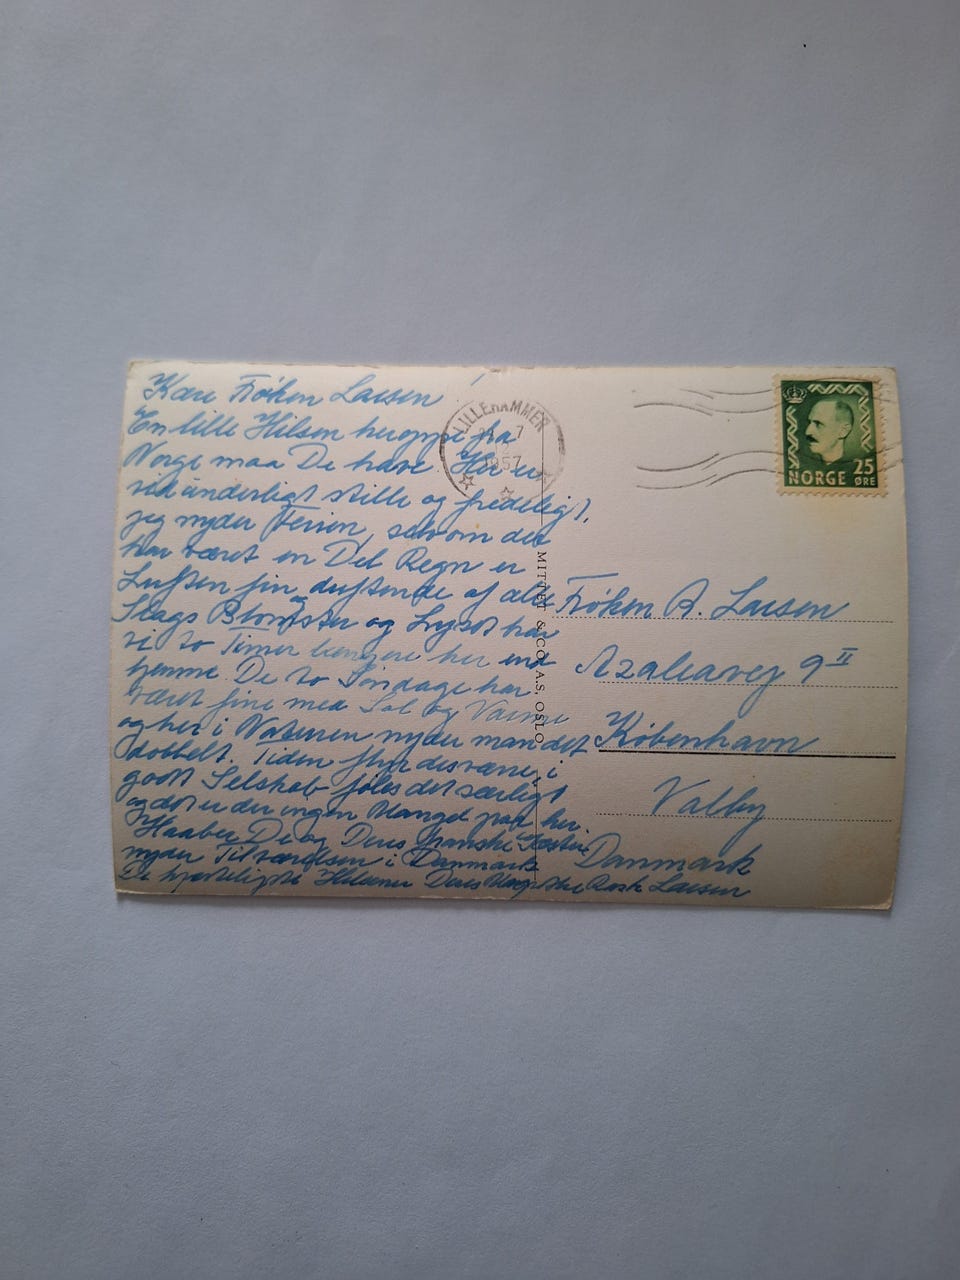 Kære Frøken Larsen!
En lille Hilsen heroppe fra
Norge maa De have. Her er
vidunderligt stille og fredeligt,
jeg nyder Ferien, selvom der
har været en Del Regn er
Luften fin, duftende af alle
Slags Blomster og Lyset har
vi to Timer længere her end
hjemme. De to Søndage har
været fine med Sol og Varme
og her i Naturen nyder man det
dobbelt. Tiden flyr desværre, i
godt Selskab føles det særligt
og det er der ingen Mangel paa her.
Haaber De og Deres franske Gæster
nyder Tilværelsen i Danmark
De hjerteligste Hilsener Deres Larsen
LILLEHAMMER
7
1957
NORGE 25 ØRE
MITTET & CO. A.S, OSLO
Frøken A. Larsen
Azaleavej 9 II
København
Valby
Danmark